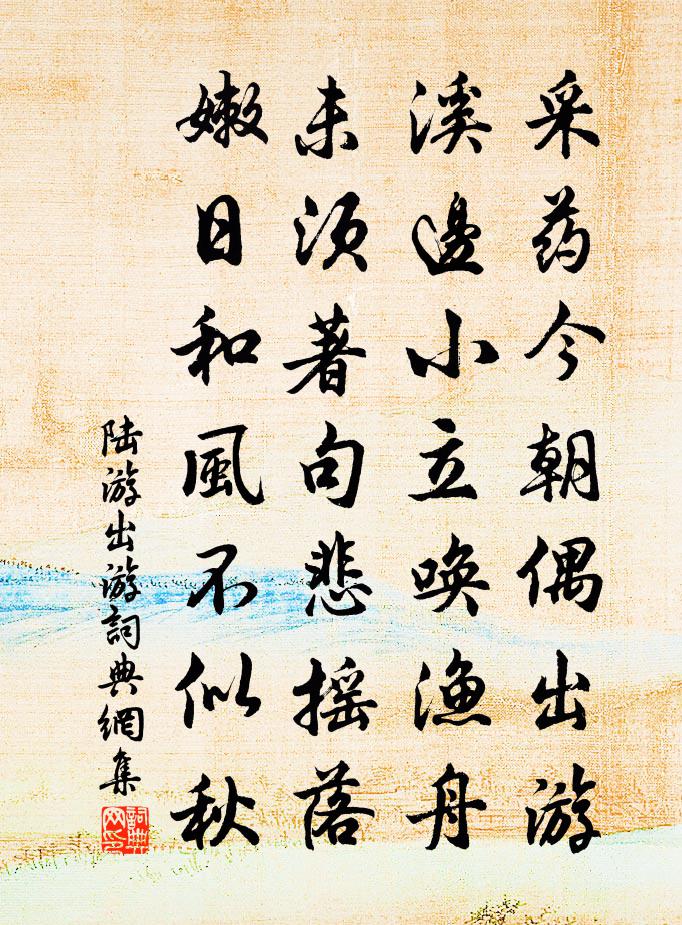 采药今朝偶出游
溪邊小立唤渔舟
未须著句悲摇落
嫩日和風不似秋
陆游出游詞典網集
詞典
网印